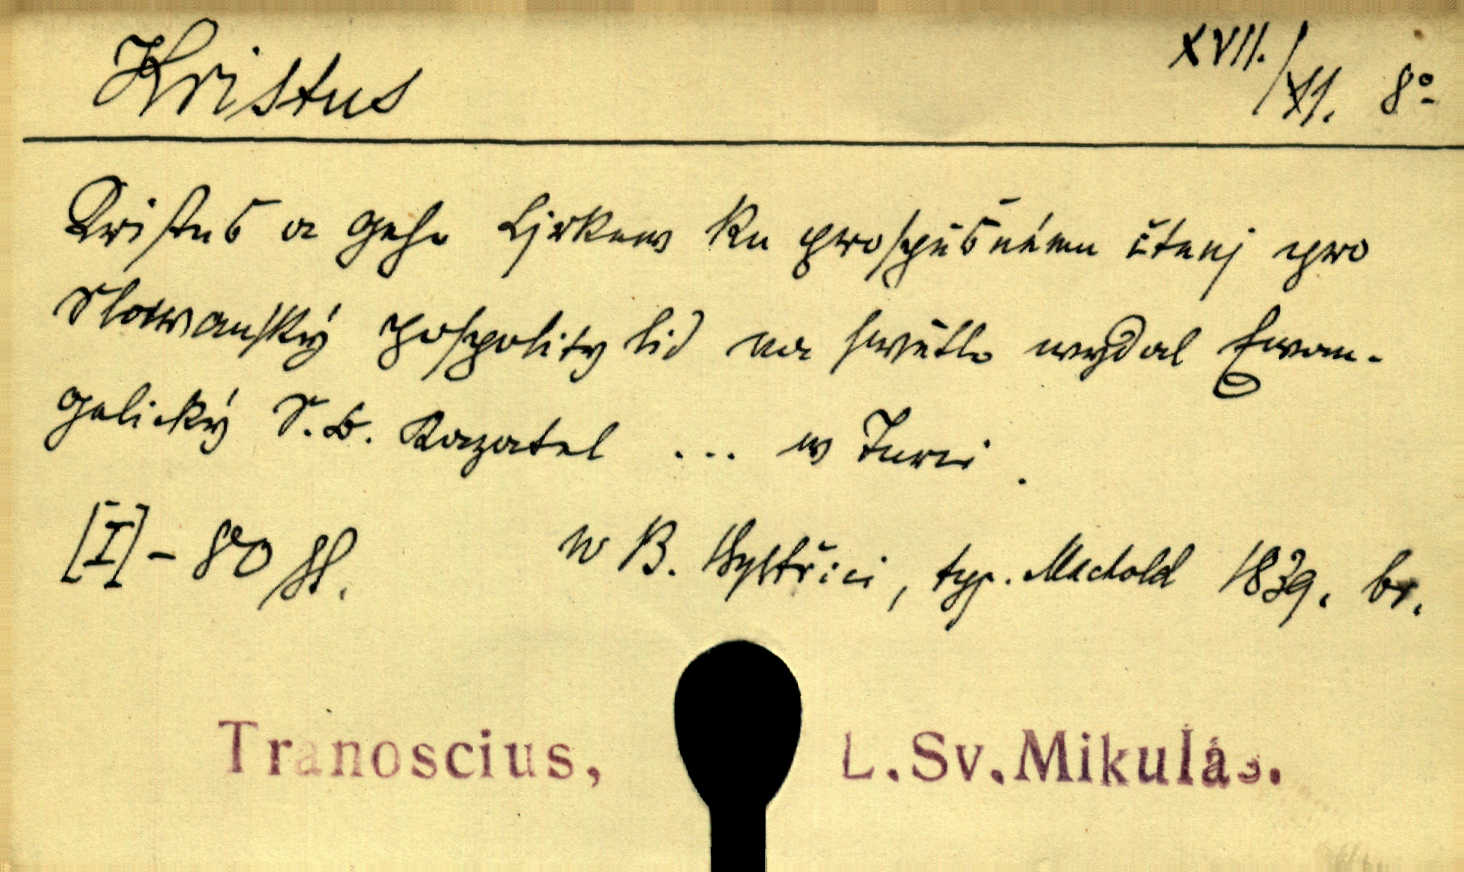 Kristus XVII./XI. 8°
Kristus a geho Cjrkew ku prospěšnému čtenj pro
Slowanský pospolity lid na swětlo wydal Ewan-
gelický S. B. Kazatel ... w Turci.
[I] - 80 ss. w B. Bystřici, typ. Machold 1839. br.
Tranoscius, L.Sv.Mikuláš.